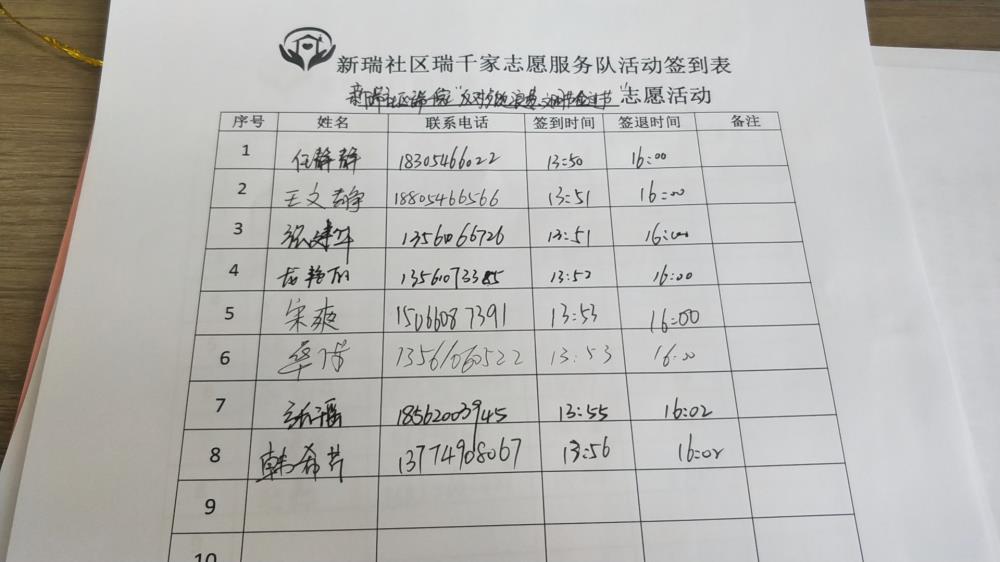 新瑞社区瑞千家志愿服务队活动签到表
新瑞社区 "反对 浪费 文明 节" 志愿活动
序号 姓名 联系电话 签到时间 签退时间 备注
1 任静静 18305466022 13:50 16:00
2 王文静 18805466566 13:51 16:00
3 13561066726 13:51 16:00
4 艳丽 13561073385 13:52 16:00
5 宋爽 15066087391 13:53 16:00
6 13561060522 13:53 16:00
7 张瑶 18562003945 13:55 16:02
8 韩希芹 13774908067 13:56 16:02
9
10